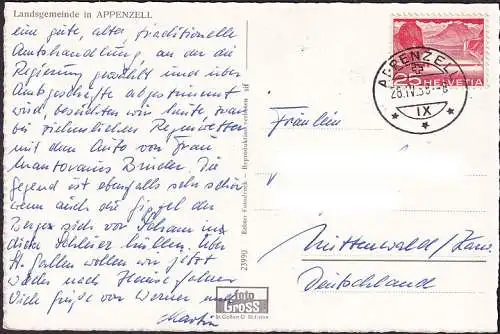 Landsgemeinde in APPENZELL
eine gute, alte, traditionelle
Amtshandlung an der die
Regierung gewählt und über
Amtsgeschäfte abgestimmt
wird, besuchten wir heute zwar
bei ziemlichen Regenwetter
mit dem Auto von Frau
Bruder. Die
Gegend ist ebenfalls sehr schön
wenn auch die Gipfel der
Berge sich vor in
dichte Schleier hüllen. Über
St. Gallen wollen wir jetzt
wieder nach Hause fahren
Dich grüßt von Werner und
Martin
23990
Foto
GROSS
St. Gallen
APPENZELL
28.IV.
IX
25 HELVETIA
Fräulein
Mittenwald/
Deutschland